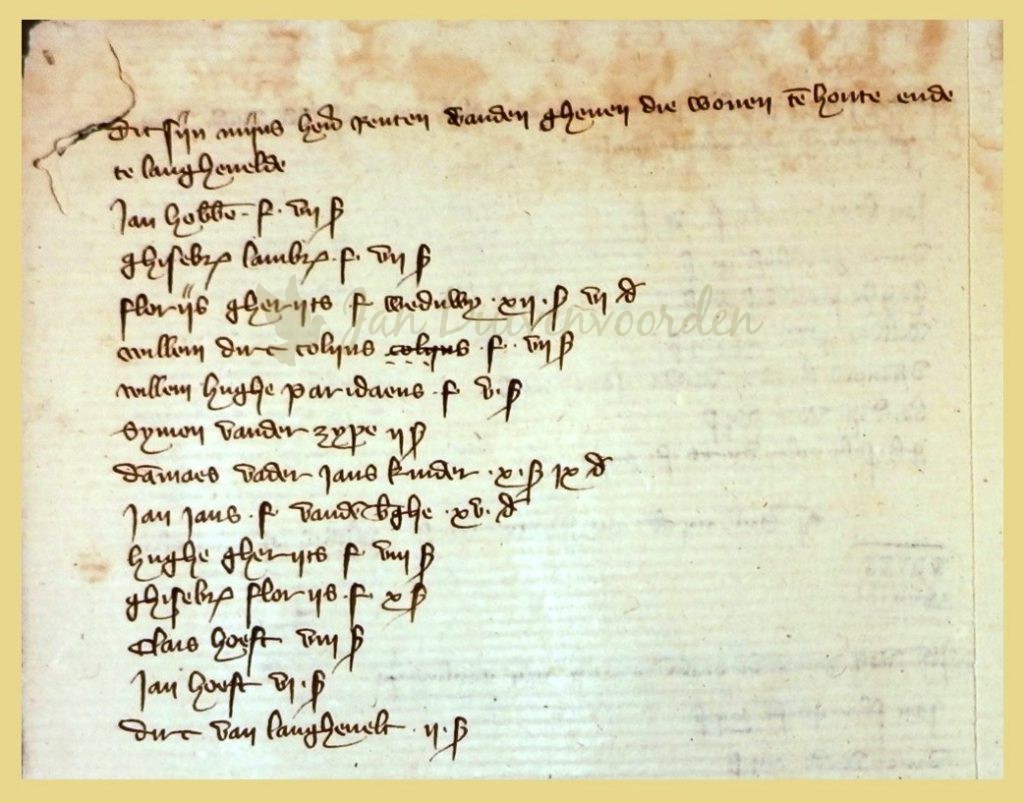 Dit siin miins her renten vanden ghenen die wonen te houte ende
te langhevelde
Jan hobbe · f · vii ß
ghisebr lambr · f · vii ß
floriis gheriits f weduwy · xii · ß vi d
willem dirc coliins coliins · f · vii ß
willem hughe paridaens · f v · ß
Symon vander zype ii ß
damaes vader Jans kinder · x · ß ix d
Jan Jans · f vande bghe · xv · d
hughe gheriits f viii ß
ghisebr floriis · f x ß
Clais hoeft viii ß
Jan hoeft vi · ß
dirc van langhevelt · ii · ß
Jan Duivenvoorden